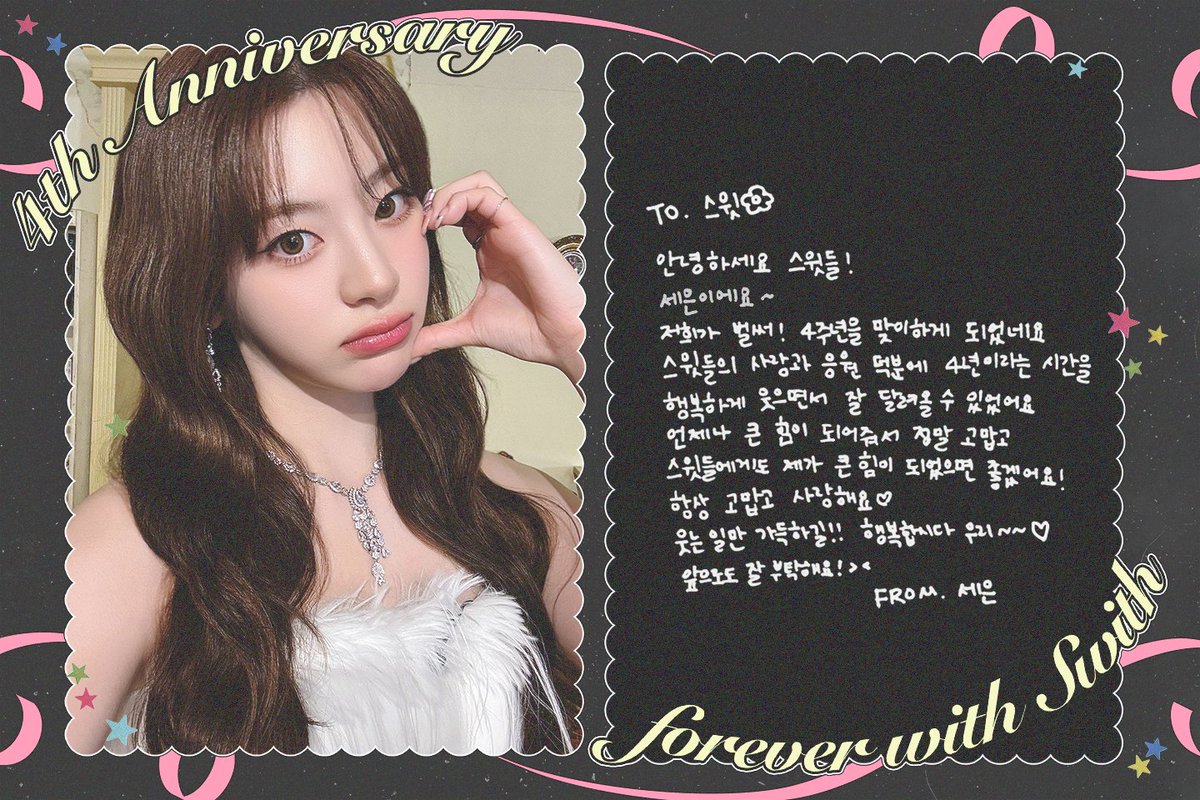 4th Anniversary
TO. 스윗
안녕하세요 스윗들!
세은이에요~
저희가 벌써! 4주년을 맞이하게 되었네요
스윗들의 사랑과 응원 덕분에 4년이라는 시간을
행복하게 웃으면서 잘 달려올 수 있었어요
언제나 큰 힘이 되어줘서 정말 고맙고
스윗들에게도 제가 큰 힘이 되었으면 좋겠어요!
항상 고맙고 사랑해요♡
웃는 일만 가득하길!! 행복합시다 우리~~♡
앞으로도 잘 부탁해요! ><
FROM. 세은
forever with Swith